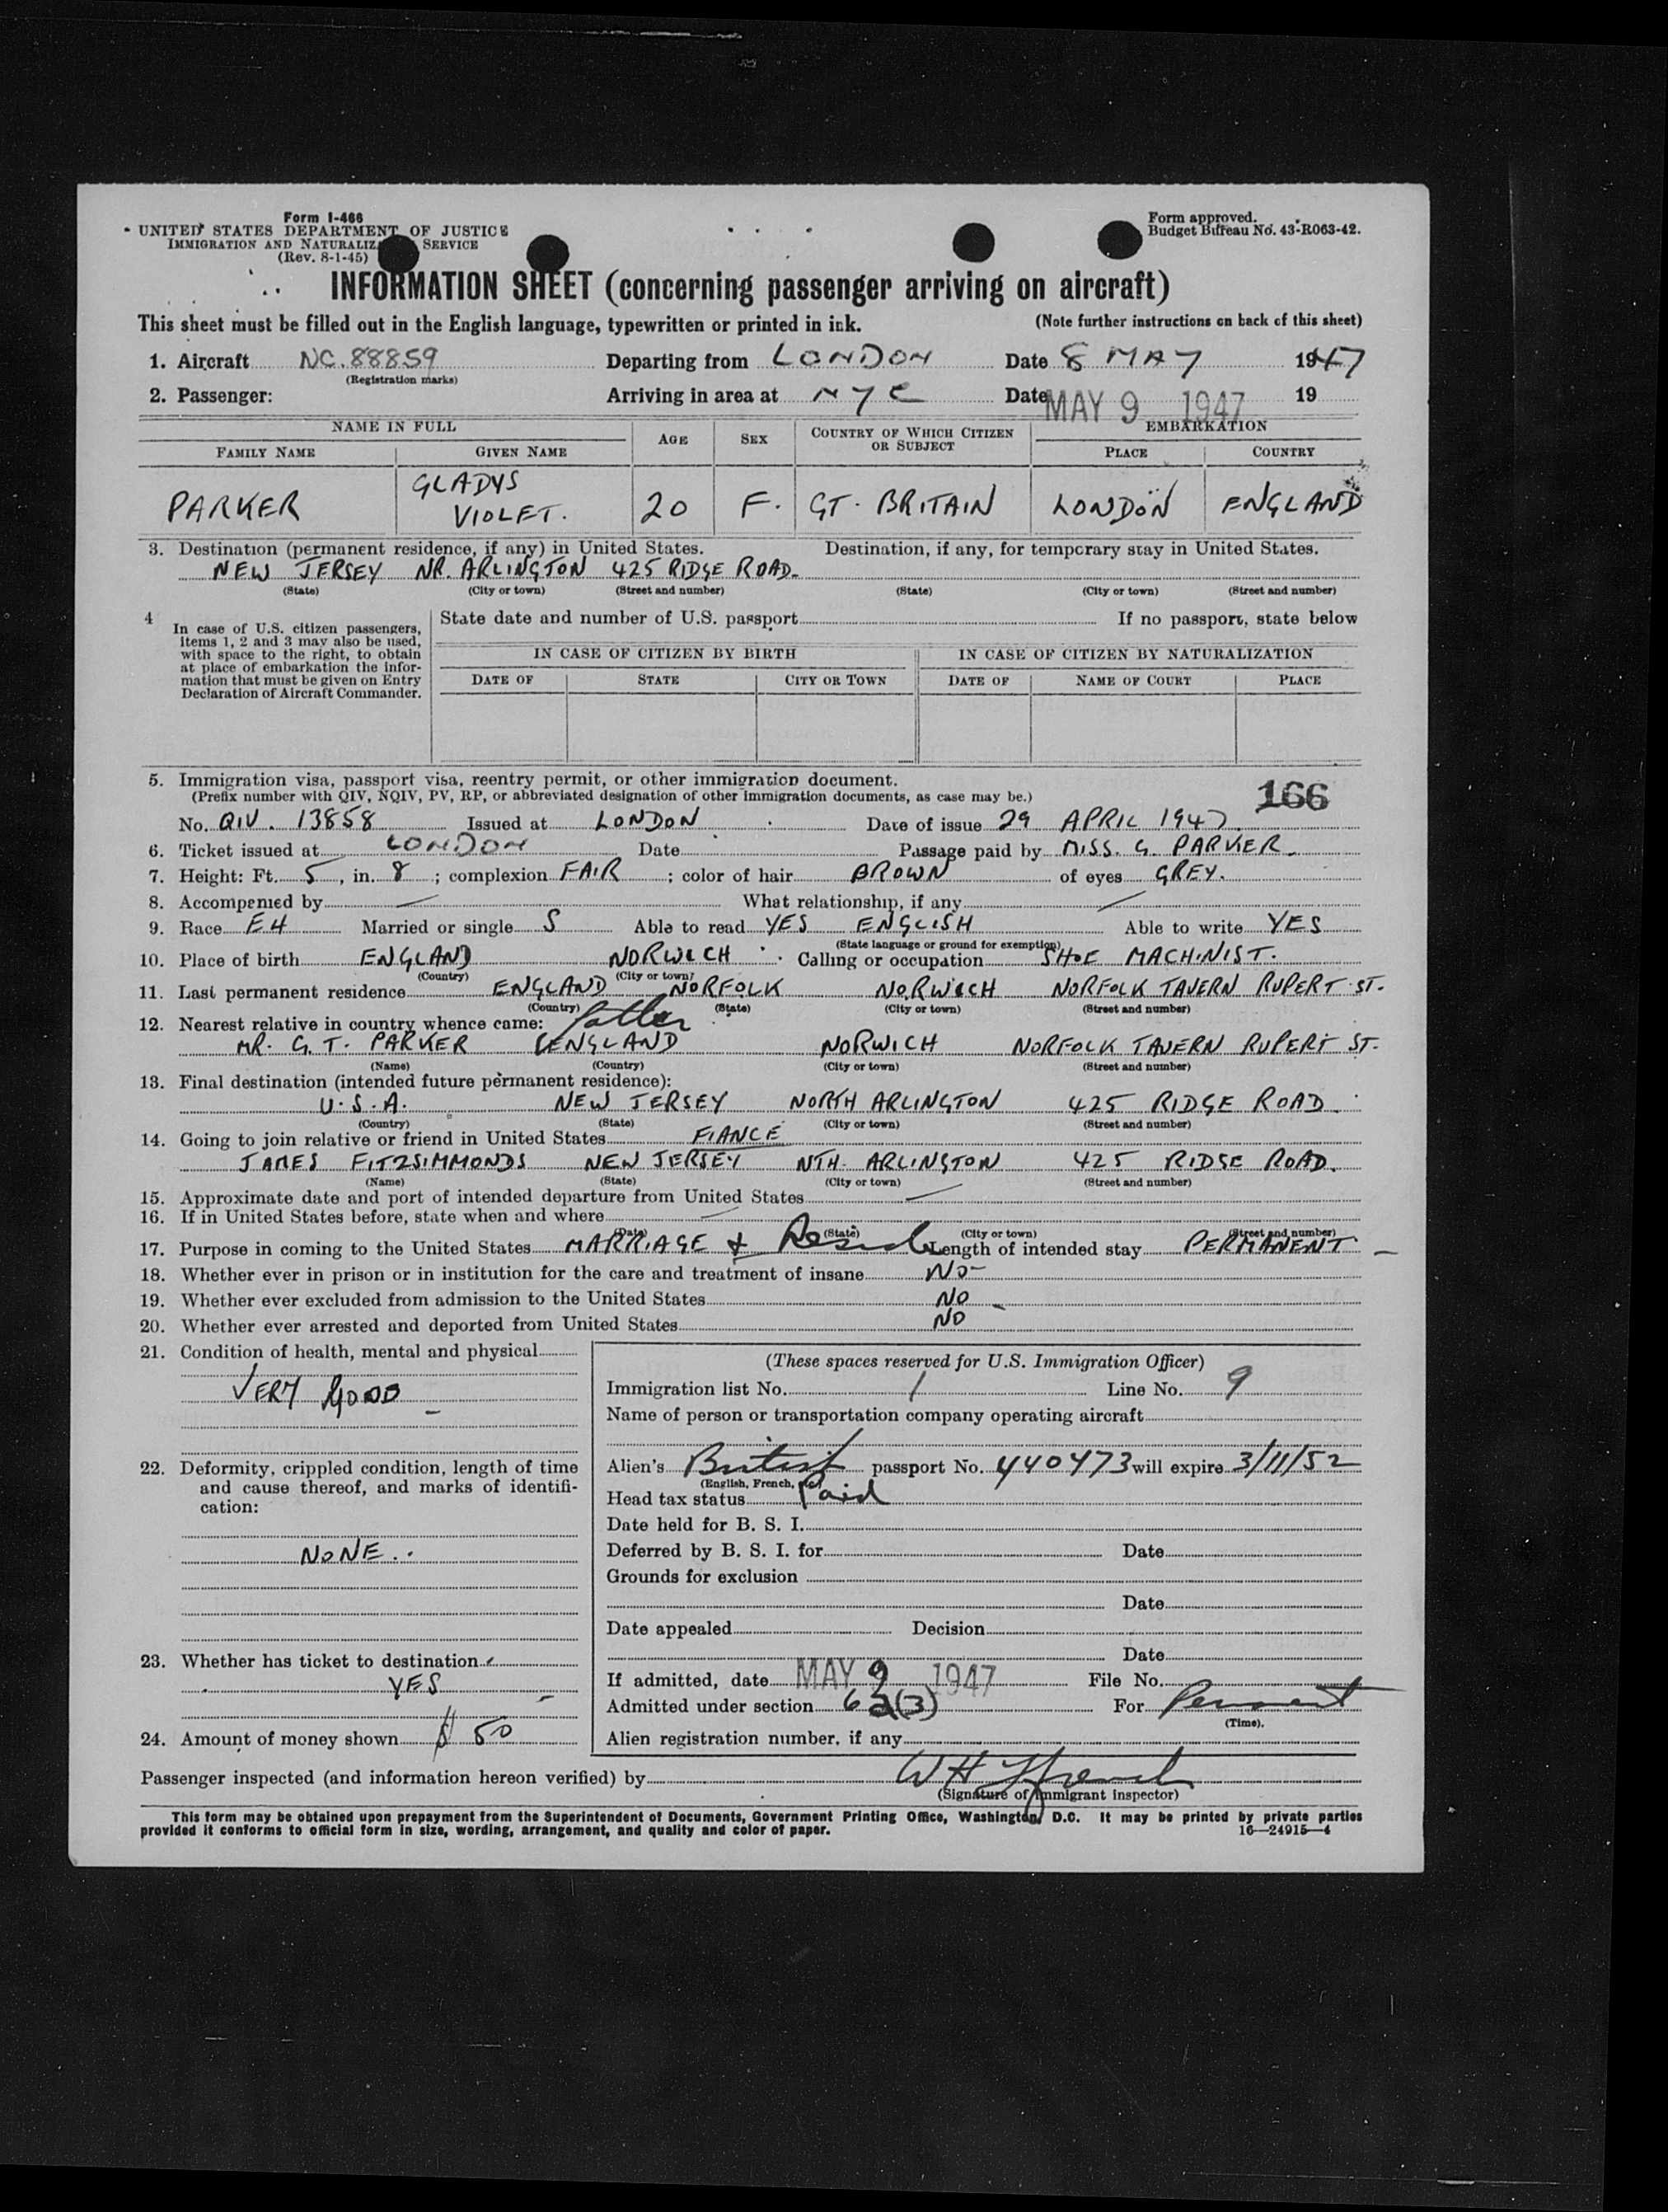 Form I-466
UNITED STATES DEPARTMENT OF JUSTICE
IMMIGRATION AND NATURALIZ SERVICE
(Rev. 8-1-45)
Form approved.
Budget Bureau No. 43-R063-42.
INFORMATION SHEET (concerning passenger arriving on aircraft)
This sheet must be filled out in the English language, typewritten or printed in ink. (Note further instructions on back of this sheet)
1. Aircraft NC.88859 Departing from LONDON Date 8 MAY 1947
(Registration marks)
2. Passenger: Arriving in area at NYC Date MAY 9 1947 19
NAME IN FULL AGE SEX COUNTRY OF WHICH CITIZEN OR SUBJECT EMBARKATION
FAMILY NAME GIVEN NAME PLACE COUNTRY
PARKER GLADYS VIOLET. 20 F. GT. BRITAIN LONDON ENGLAND
3. Destination (permanent residence, if any) in United States. Destination, if any, for temporary stay in United States.
NEW JERSEY NR. ARLINGTON 425 RIDGE ROAD.
(State) (City or town) (Street and number) (State) (City or town) (Street and number)
4 In case of U.S. citizen passengers, items 1, 2 and 3 may also be used, with space to the right, to obtain at place of embarkation the information that must be given on Entry Declaration of Aircraft Commander.
State date and number of U.S. passport If no passport, state below
IN CASE OF CITIZEN BY BIRTH IN CASE OF CITIZEN BY NATURALIZATION
DATE OF STATE CITY OR TOWN DATE OF NAME OF COURT PLACE
5. Immigration visa, passport visa, reentry permit, or other immigration document. 166
(Prefix number with QIV, NQIV, PV, RP, or abbreviated designation of other immigration documents, as case may be.)
No. QIV. 13858 Issued at LONDON Date of issue 29 APRIL 1947.
6. Ticket issued at LONDON Date Passage paid by MISS. G. PARKER.
7. Height: Ft. 5, in. 8; complexion FAIR; color of hair BROWN of eyes GREY.
8. Accompenied by — What relationship, if any —
9. Race E4 Married or single S Able to read YES ENGLISH Able to write YES
(State language or ground for exemption)
10. Place of birth ENGLAND NORWICH Calling or occupation SHOE MACHINIST.
(Country) (City or town)
11. Last permanent residence ENGLAND NORFOLK NORWICH NORFOLK TAVERN RUPERT ST.
(Country) (State) (City or town) (Street and number)
12. Nearest relative in country whence came: father
MR. G. T. PARKER ENGLAND NORWICH NORFOLK TAVERN RUPERT ST.
(Name) (Country) (City or town) (Street and number)
13. Final destination (intended future permanent residence):
U.S.A. NEW JERSEY NORTH ARLINGTON 425 RIDGE ROAD.
(Country) (State) (City or town) (Street and number)
14. Going to join relative or friend in United States FIANCE
JAMES FITZSIMMONDS NEW JERSEY NTH. ARLINGTON 425 RIDGE ROAD.
(Name) (State) (City or town) (Street and number)
15. Approximate date and port of intended departure from United States —
16. If in United States before, state when and where —
(Date) (State) (City or town) (Street and number)
17. Purpose in coming to the United States MARRIAGE & Length of intended stay PERMANENT
18. Whether ever in prison or in institution for the care and treatment of insane NO
19. Whether ever excluded from admission to the United States NO
20. Whether ever arrested and deported from United States NO
21. Condition of health, mental and physical
VERY GOOD
22. Deformity, crippled condition, length of time and cause thereof, and marks of identification:
NONE.
23. Whether has ticket to destination
YES
24. Amount of money shown $ 50
(These spaces reserved for U.S. Immigration Officer)
Immigration list No. 1 Line No. 9
Name of person or transportation company operating aircraft
Alien's British passport No. 440473 will expire 3/11/52
(English, French, etc.)
Head tax status Paid
Date held for B. S. I.
Deferred by B. S. I. for Date
Grounds for exclusion
Date
Date appealed Decision
Date
If admitted, date MAY 9 1947 File No.
Admitted under section 6a(3) For Permanent
(Time).
Alien registration number, if any
Passenger inspected (and information hereon verified) by
(Signature of immigrant inspector)
This form may be obtained upon prepayment from the Superintendent of Documents, Government Printing Office, Washington, D.C. It may be printed by private parties
provided it conforms to official form in size, wording, arrangement, and quality and color of paper. 16—24915—4